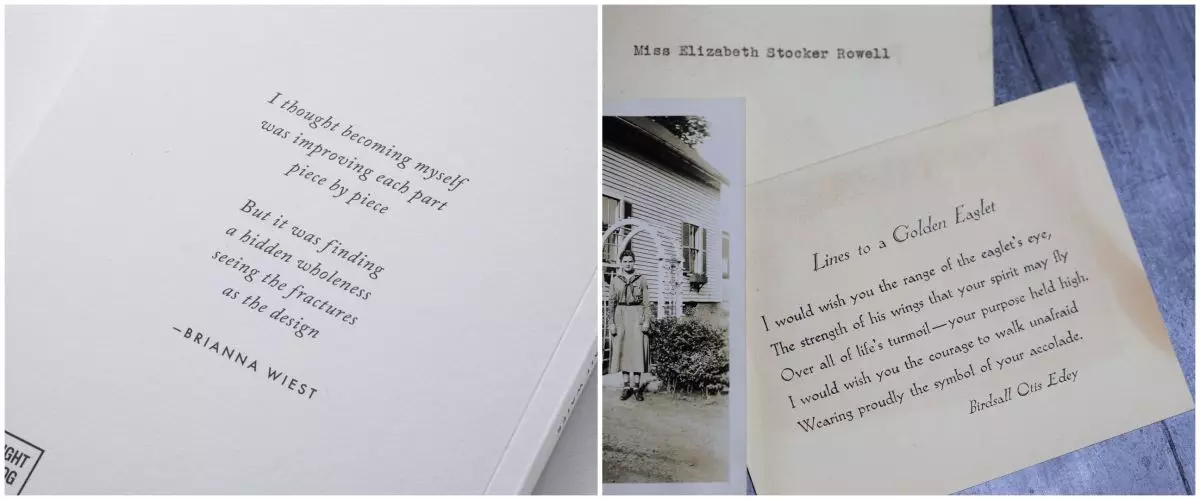 I thought becoming myself
was improving each part
piece by piece
But it was finding
a hidden wholeness
seeing the fractures
as the design
–BRIANNA WIEST
Miss Elizabeth Stocker Rowell
Lines to a Golden Eaglet
I would wish you the range of the eaglet's eye,
The strength of his wings that your spirit may fly
Over all of life's turmoil—your purpose held high.
I would wish you the courage to walk unafraid
Wearing proudly the symbol of your accolade.
Birdsall Otis Edey